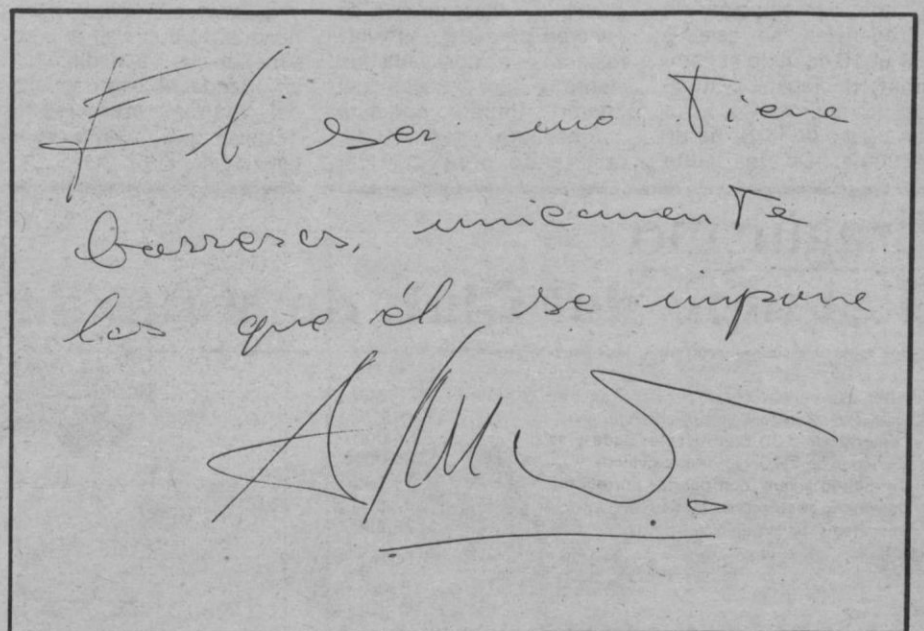 El ser no tiene
barreras, unicamente
las que él se impone